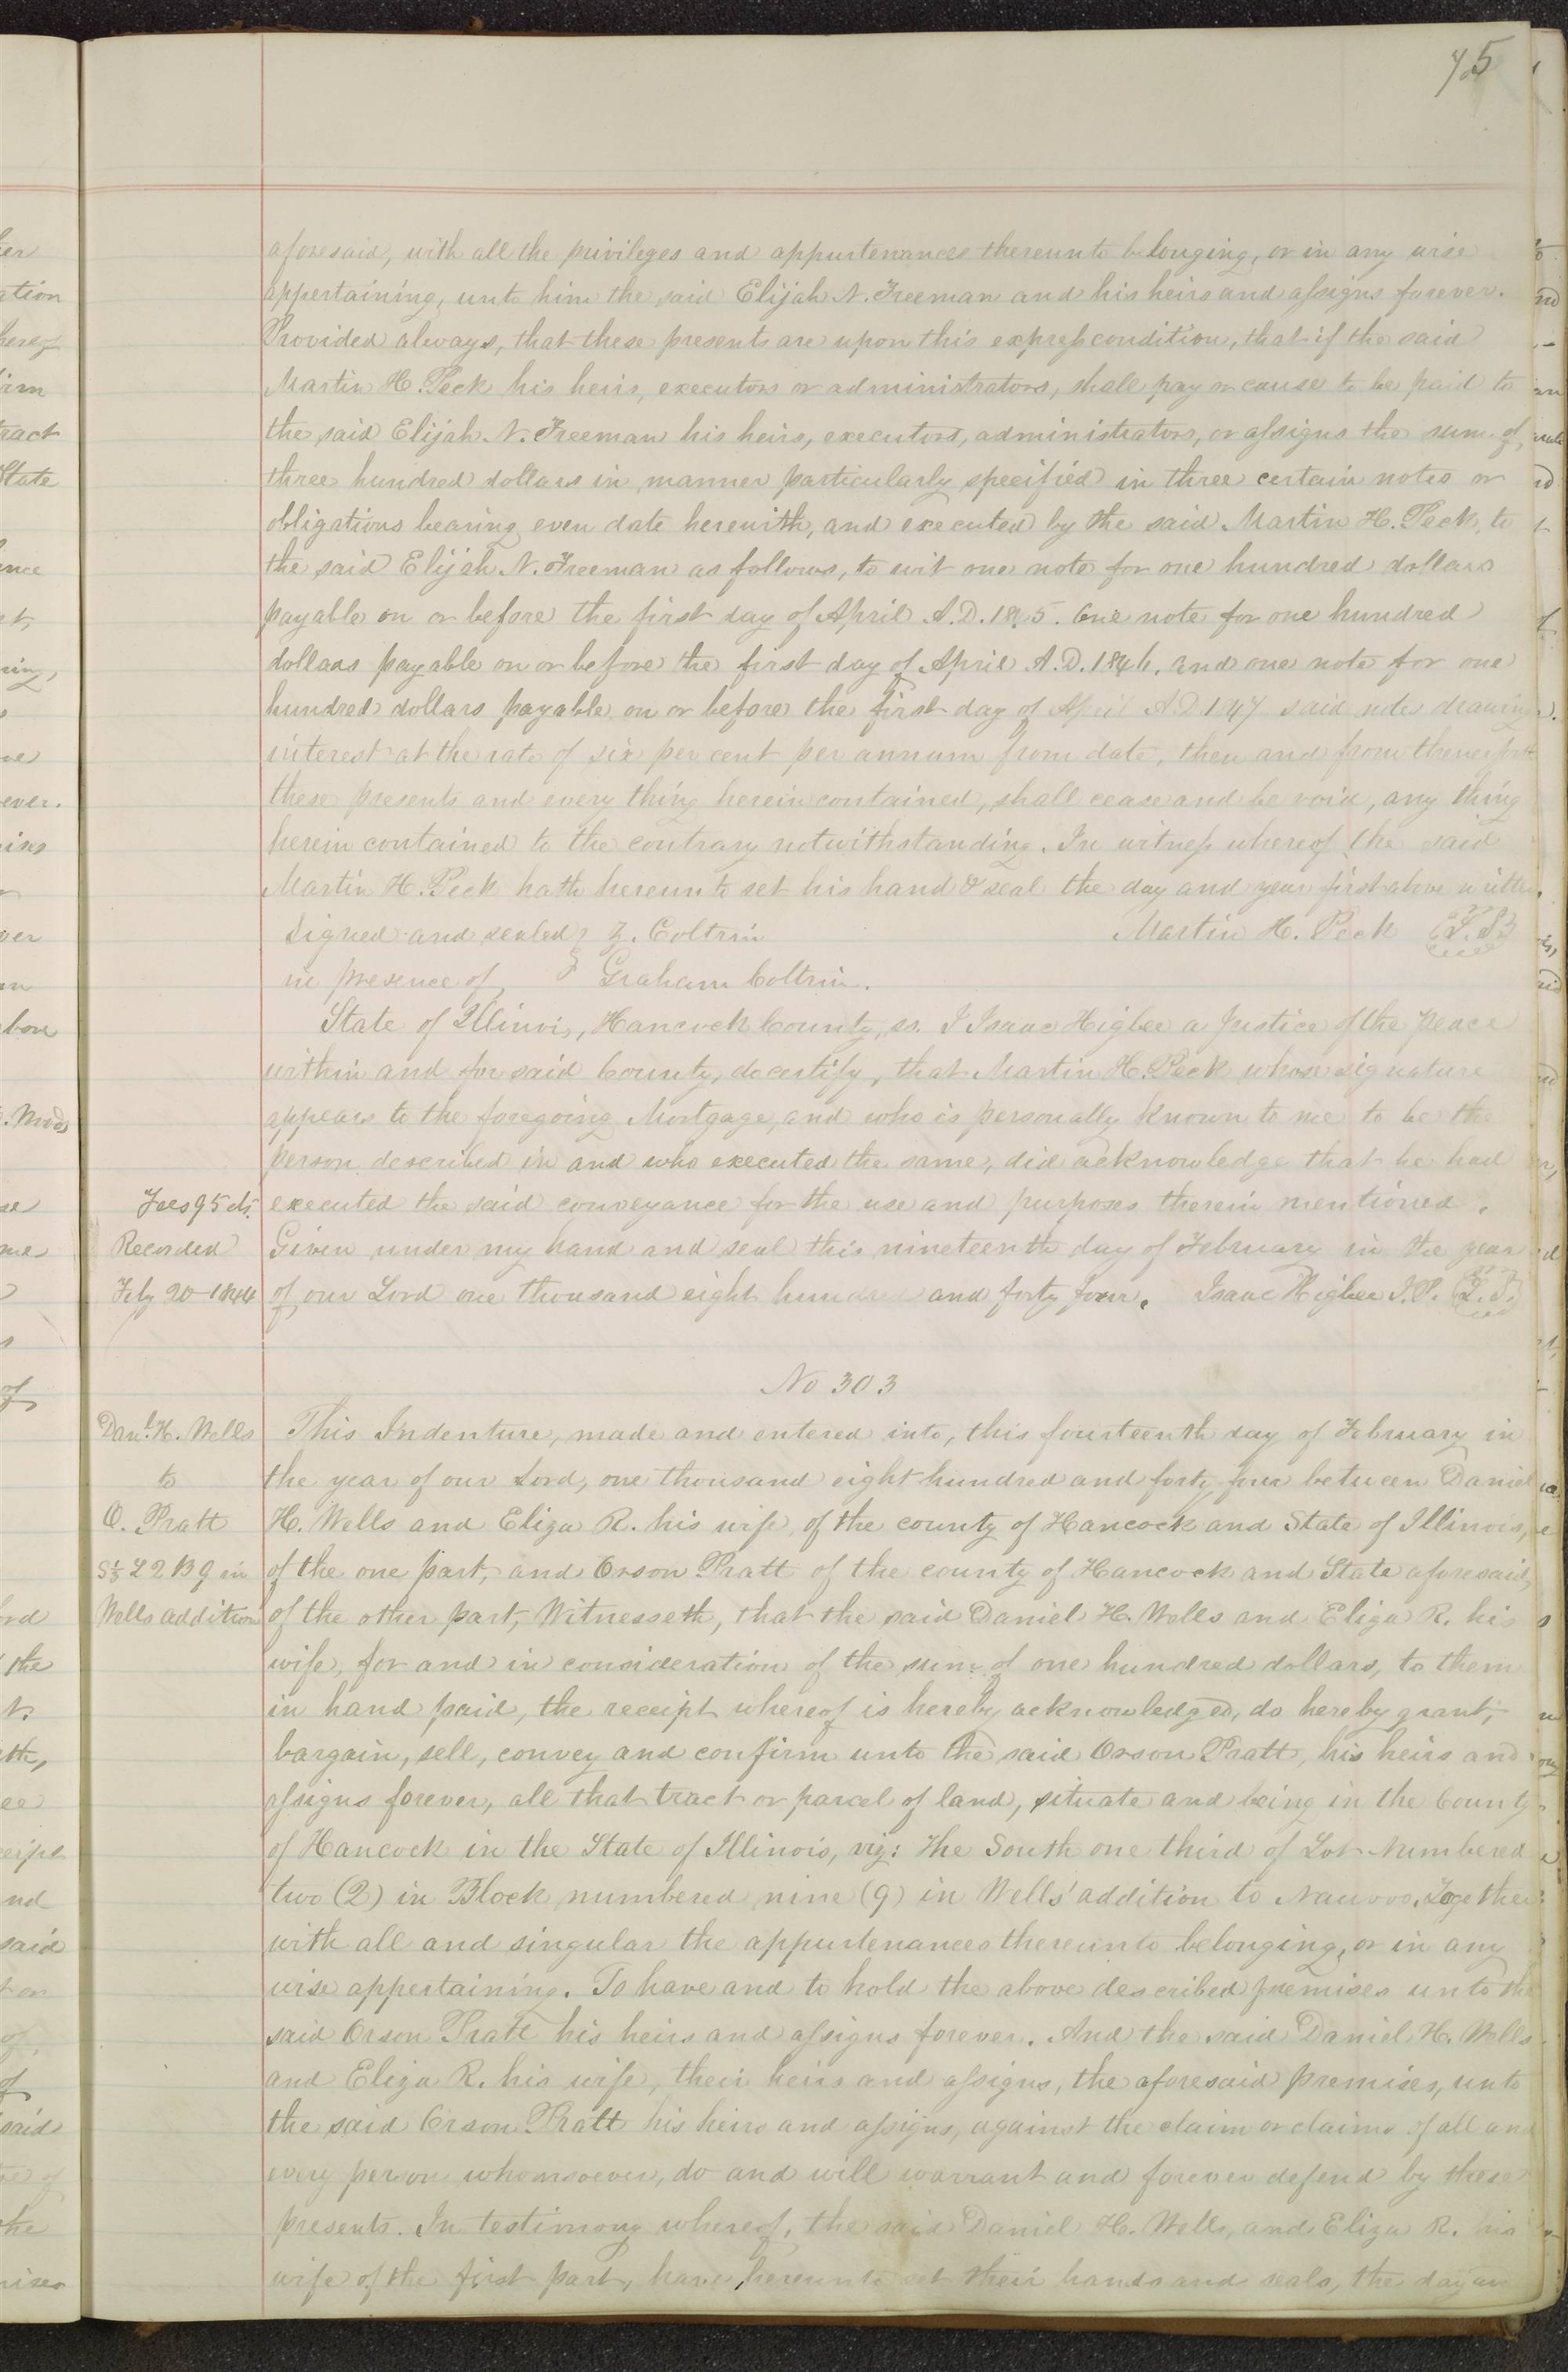 75
aforesaid, with all the privileges and appurtenances thereunto belonging, or in any wise
appertaining, unto him the said Elijah N. Freeman and his heirs and assigns forever.
Provided always, that these presents are upon this express condition, that if the said
Martin H. Peck his heirs, executors or administrators, shall pay or cause to be paid to
the said Elijah N. Freeman his heirs, executors, administrators, or assigns the sum of
three hundred dollars in manner particularly specified in three certain notes or
obligations bearing even date herewith, and executed by the said Martin H. Peck, to
the said Elijah N. Freeman as follows, to wit one note for one hundred dollars
payable on or before the first day of April A.D. 1845. One note for one hundred
dollars payable on or before the first day of April A.D. 1846. and one note for one
hundred dollars payable on or before the first day of April A.D 1847 said notes drawing
interest at the rate of six per cent per annum from date, then and from thenceforth
these presents and every thing herein contained, shall cease and be void, any thing
herein contained to the contrary notwithstanding. In witness whereof the said
Martin H. Peck hath hereunto set his hand & seal the day and year first above written.
Signed and sealed Z. Coltrin Martin H. Peck L.S
in presence of Graham Coltrin.
State of Illinois, Hancock County, ss. I Isaac Higbee a Justice of the peace
within and for said County, do certify, that Martin H. Peck whose signature
appears to the foregoing Mortgage, and who is personally known to me to be the
person described in and who executed the same, did acknowledge that he had
Fees 95 cts. executed the said conveyance for the use and purposes therein mentioned.
Recorded Given under my hand and seal this nineteenth day of February in the year
Feby 20 1844 of our Lord one thousand eight hundred and forty four. Isaac Higbee J.P. L.S.
No 303
Danl. H. Wells This Indenture, made and entered into, this fourteenth day of February in
to the year of our Lord, one thousand eight hundred and forty four between Daniel
O. Pratt H. Wells and Eliza R. his wife, of the county of Hancock and State of Illinois,
S⅓ L 2 B 9 in of the one part, and Orson Pratt of the county of Hancock and State aforesaid,
Wells addition of the other part, Witnesseth, that the said Daniel H. Wells and Eliza R. his
wife, for and in consideration of the sum of one hundred dollars, to them
in hand paid, the receipt whereof is hereby acknowledged, do hereby grant,
bargain, sell, convey and confirm unto the said Orson Pratt, his heirs and
assigns forever, all that tract or parcel of land, situate and being in the County
of Hancock in the State of Illinois, viz: The South one third of Lot Numbered
two (2) in Block numbered nine (9) in Wells' addition to Nauvoo. Together
with all and singular the appurtenances thereunto belonging, or in any
wise appertaining. To have and to hold the above described premises unto the
said Orson Pratt his heirs and assigns forever. And the said Daniel H. Wells
and Eliza R. his wife, their heirs and assigns, the aforesaid premises, unto
the said Orson Pratt his heirs and assigns, against the claim or claims of all and
every person whomsoever, do and will warrant and forever defend by these
presents. In testimony whereof, the said Daniel H. Wells, and Eliza R. his
wife of the first part, have hereunto set their hands and seals, the day and